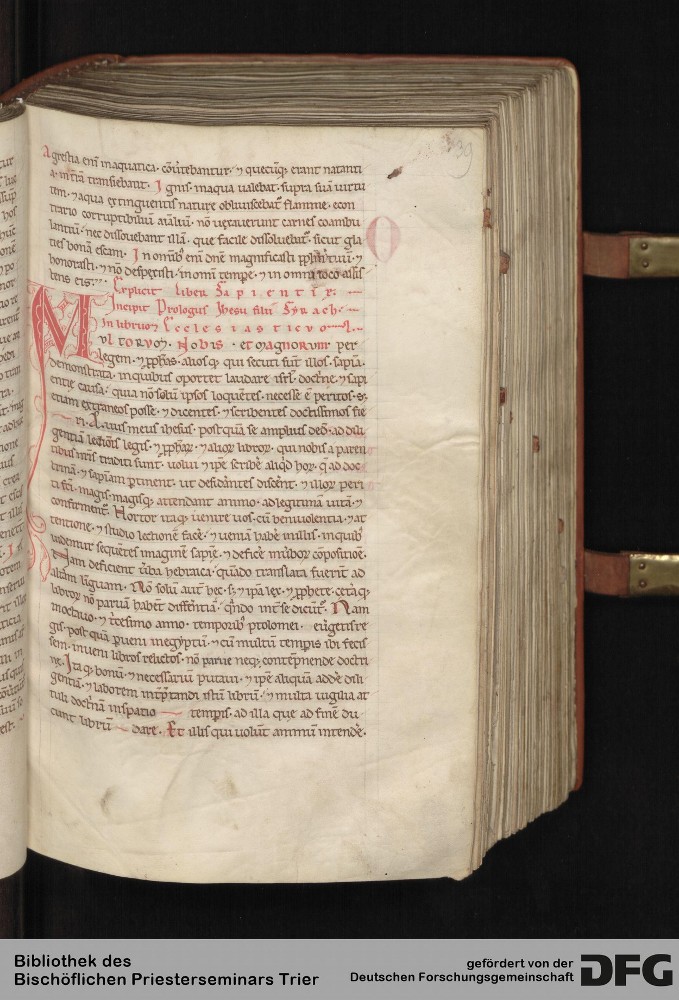 Agrestia eni͞ inaquatica · co͞u͛tebantur · ⁊ quecu͞q; erant natanti
a · in t͛ra͞ transiebant · Ignis · inaqua ualebat · supra sua͞ uirtu
tem · ⁊ aqua extinguentis nature obliuiscebat᷑ · flamme · econ
trario corruptibiliu͞ ai͞aliu͞ · no͞ uexauerunt carnes coambu
lantiu͞ · nec dissoluebant illa͞ · que facile dissoluebat᷑ · sicut gla
cies bona͞ escam · In omib; eni͞ dn͞e magnificasti ppl͞m tuu͞ · ⁊
honorasti · ⁊ no͞ despexisti · in omni tempe · ⁊ in omni loco assis
tens eis ·
Explicit liber Sapientie ·
Incipit Prologus Ihesu filii Syrach ·
In librum Ecclesiasticu͞
Multorum · Nobis · et magnorum per
legem · ⁊ ꝓph͞as · aliosq; qui secuti su͞t illos · sapia͞
demonstrata · in quibus oportet laudare isrl͞ doct͛ne · ⁊ sapi
entie causa · quia no͞ solu͞ ipsos loque͞tes · necesse e͞ peritos · s;
etiam extraneos posse · ⁊ dicentes · ⁊ scribentes doctissimos fie
ri · Auus meus ihesus · postqua͞ se amplius ded͛ · ad dili
gentia͞ lectio͞is legis · ⁊ ꝓph͞aꝝ · ⁊ alioꝝ libroꝝ · qui nobis a paren
tibus nr͞is traditi sunt · uolui ⁊ ip͞e scribe͛ aliq͛d hoꝝ · q͛ ad doc
trina͞ · ⁊ sapia͞m ꝑtinent · ut desida͞ntes disce͞nt · ⁊ illoꝝ peri
ti fc͞i · magis magisq; attendant animo · ad legitima͞ uita͞ · ⁊
confirment᷑ · Hortor itaq; uenire uos · cu͞ beniuolentia · ⁊ at
tentione · ⁊ studio lectione͞ face͛ · ⁊ uenia͞ habe͛ inillis · inquib;
uidemur sequentes imagine͞ sapie͞ · ⁊ defice͛ inu͛boꝝ co͞positio͞e ·
Nam deficient u͛ba hebraica · quando translata fueri͞t ad
alia͞m lingua͞m · No͞ solu͞ aut͞ hec · s; ⁊ ip͞a lex · ⁊ ꝓphete · cet͛aq;
libroꝝ no͞ parua͞ habe͞t diffe͛ntia͞ · q͛ndo int͛ se dicu͞t᷑ · Nam
inoctauo · ⁊ t͛cesimo anno · temporib; ptolomei · eu͛getis re
gis · postqua͞ ꝑueni inegyptu͞ · ⁊ cu͞ multu͞ tempis ibi fecis
sem · inueni libros relictos · no͞ parue neq; conte͞pnende doctri
ne · Itaq; bonu͞ · ⁊ necessariu͞ putaui · ⁊ ip͞e aliqua͞ adde͛ dili
gentia͞ · ⁊ laborem int͛ꝑtandi istu͞ libru͞ · ⁊ multa uigilia at
tuli doct͛na͞ inspatio tempis · ad illa que ad fine͞ du
cunt libru͞ dare · Et illis qui uolu͞t animu͞ intende͛ ·
Bibliothek des
Bischöflichen Priesterseminars Trier
gefördert von der
Deutschen Forschungsgemeinschaft
DFG